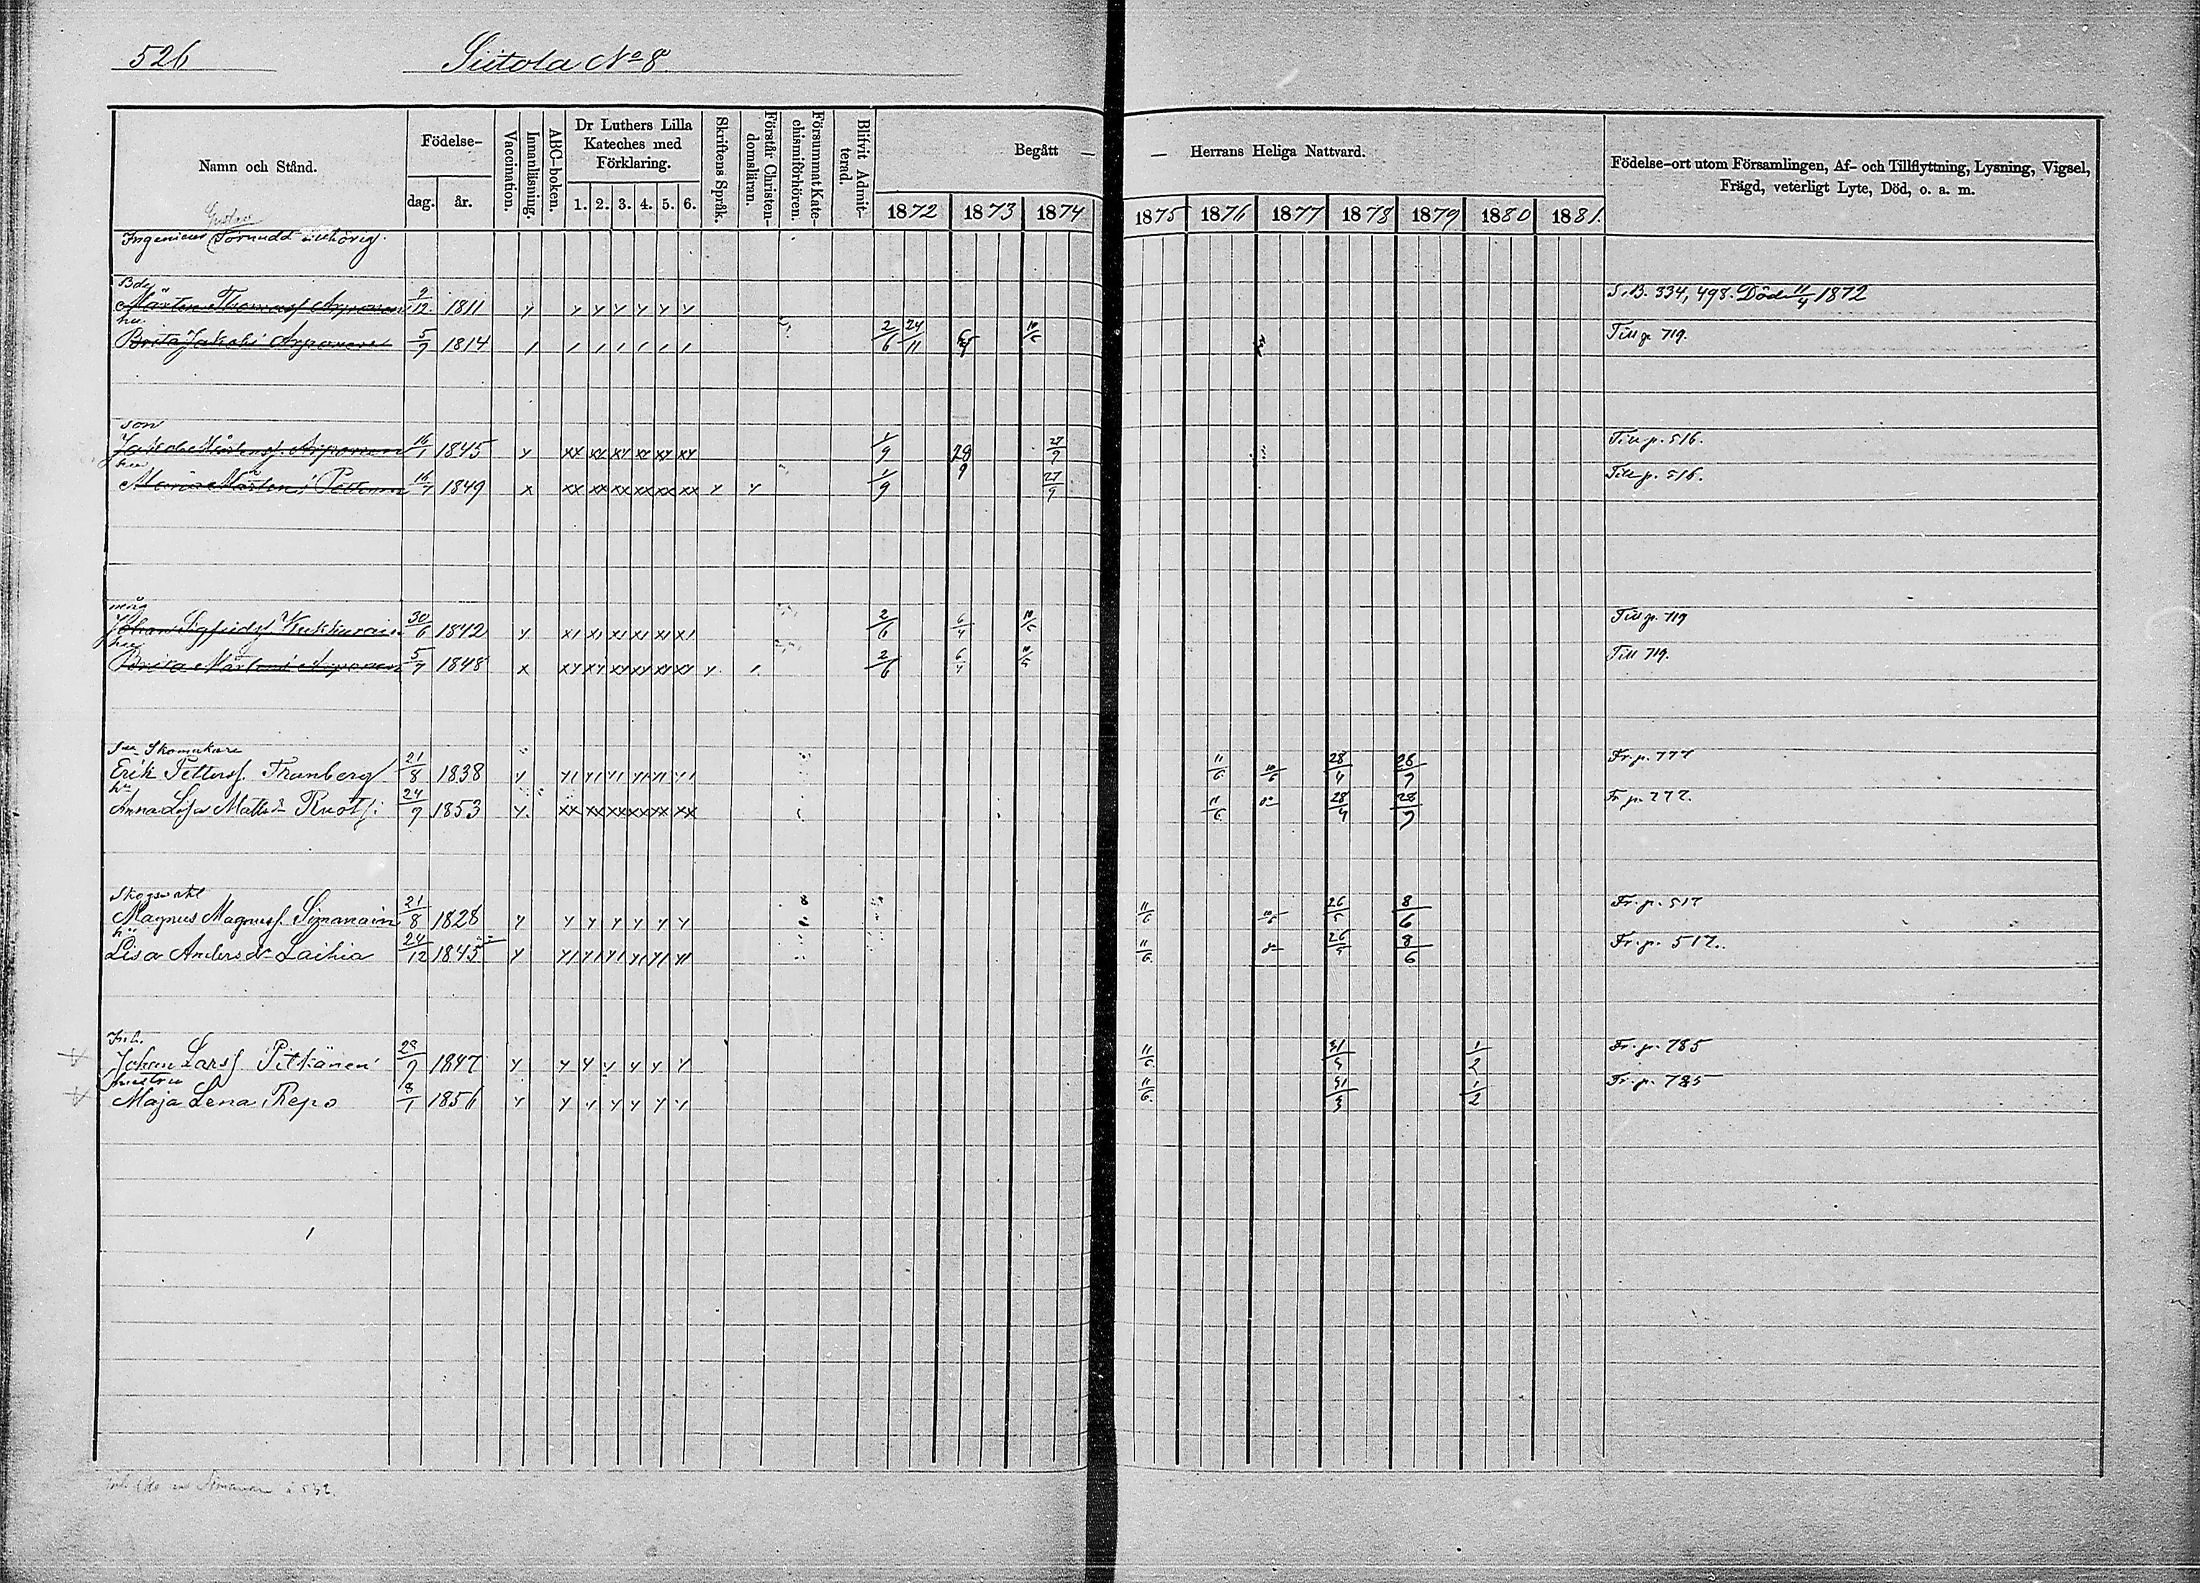 526 Siitola No 8
Namn och Stånd.
Födelse-
dag.
år.
Vaccination.
Innanläsning.
ABC-boken.
Dr Luthers Lilla
Kateches med
Förklaring.
1. 2. 3. 4. 5. 6.
Skriftens Språk.
Förstår Christen-
domsläran.
Försummat Kate-
chismiförhören.
Blifvit Admit-
terad.
Begått — — Herrans Heliga Nattvard.
1872 1873 1874 1875 1876 1877 1878 1879 1880 1881.
Födelse-ort utom Församlingen, Af- och Tillflyttning, Lysning, Vigsel,
Frägd, veterligt Lyte, Död, o. a. m.
Gustav
Ingenieur Tornudd tillhörig.
Bde
Mårten Thomass. Arponen 9/12 1811 S.B. 334, 498. Död 11/4 1872
hu.
Brita Jakobs Arponen 5/9 1814 2/6 24/11 Till p. 719.
son
Jakob Mårtenss. Arponen 16/1 1845 1/9 28/9 27/9 Till p. 516.
hu
Maria Mårten Pettonen 16/7 1849 1/9 27/9 Till p. 516.
måg
Johan Sigfridss. Kukkurain 30/6 1842 2/6 6/4 10/5 Till p. 719
hu
Brita Mårtens Arponen 5/9 1848 2/6 6/4 10/5 Till 719.
Skomakare
Erik Petterss. Frunberg 21/8 1838 11/6 10/6 28/4 28/9 Fr. p. 777
hu
Anna Lisa Matts dr Ruotsi 24/9 1853 11/6 do 28/4 28/9 Fr p. 777.
Skogsvakt
Magnus Magnuss. Simanain 21/8 1828 11/6 10/6 26/5 8/6 Fr. p. 517
hu
Lisa Anders dr Laihia 24/12 1845 11/6 do 26/5 8/6 Fr. p. 517.
Inh.
Johan Larss. Pitkänen 29/9 1847 11/6 31/3 1/2 Fr. p. 785
hustru
Maja Lena Repo 18/1 1856 11/6 31/3 1/2 Fr. p. 785